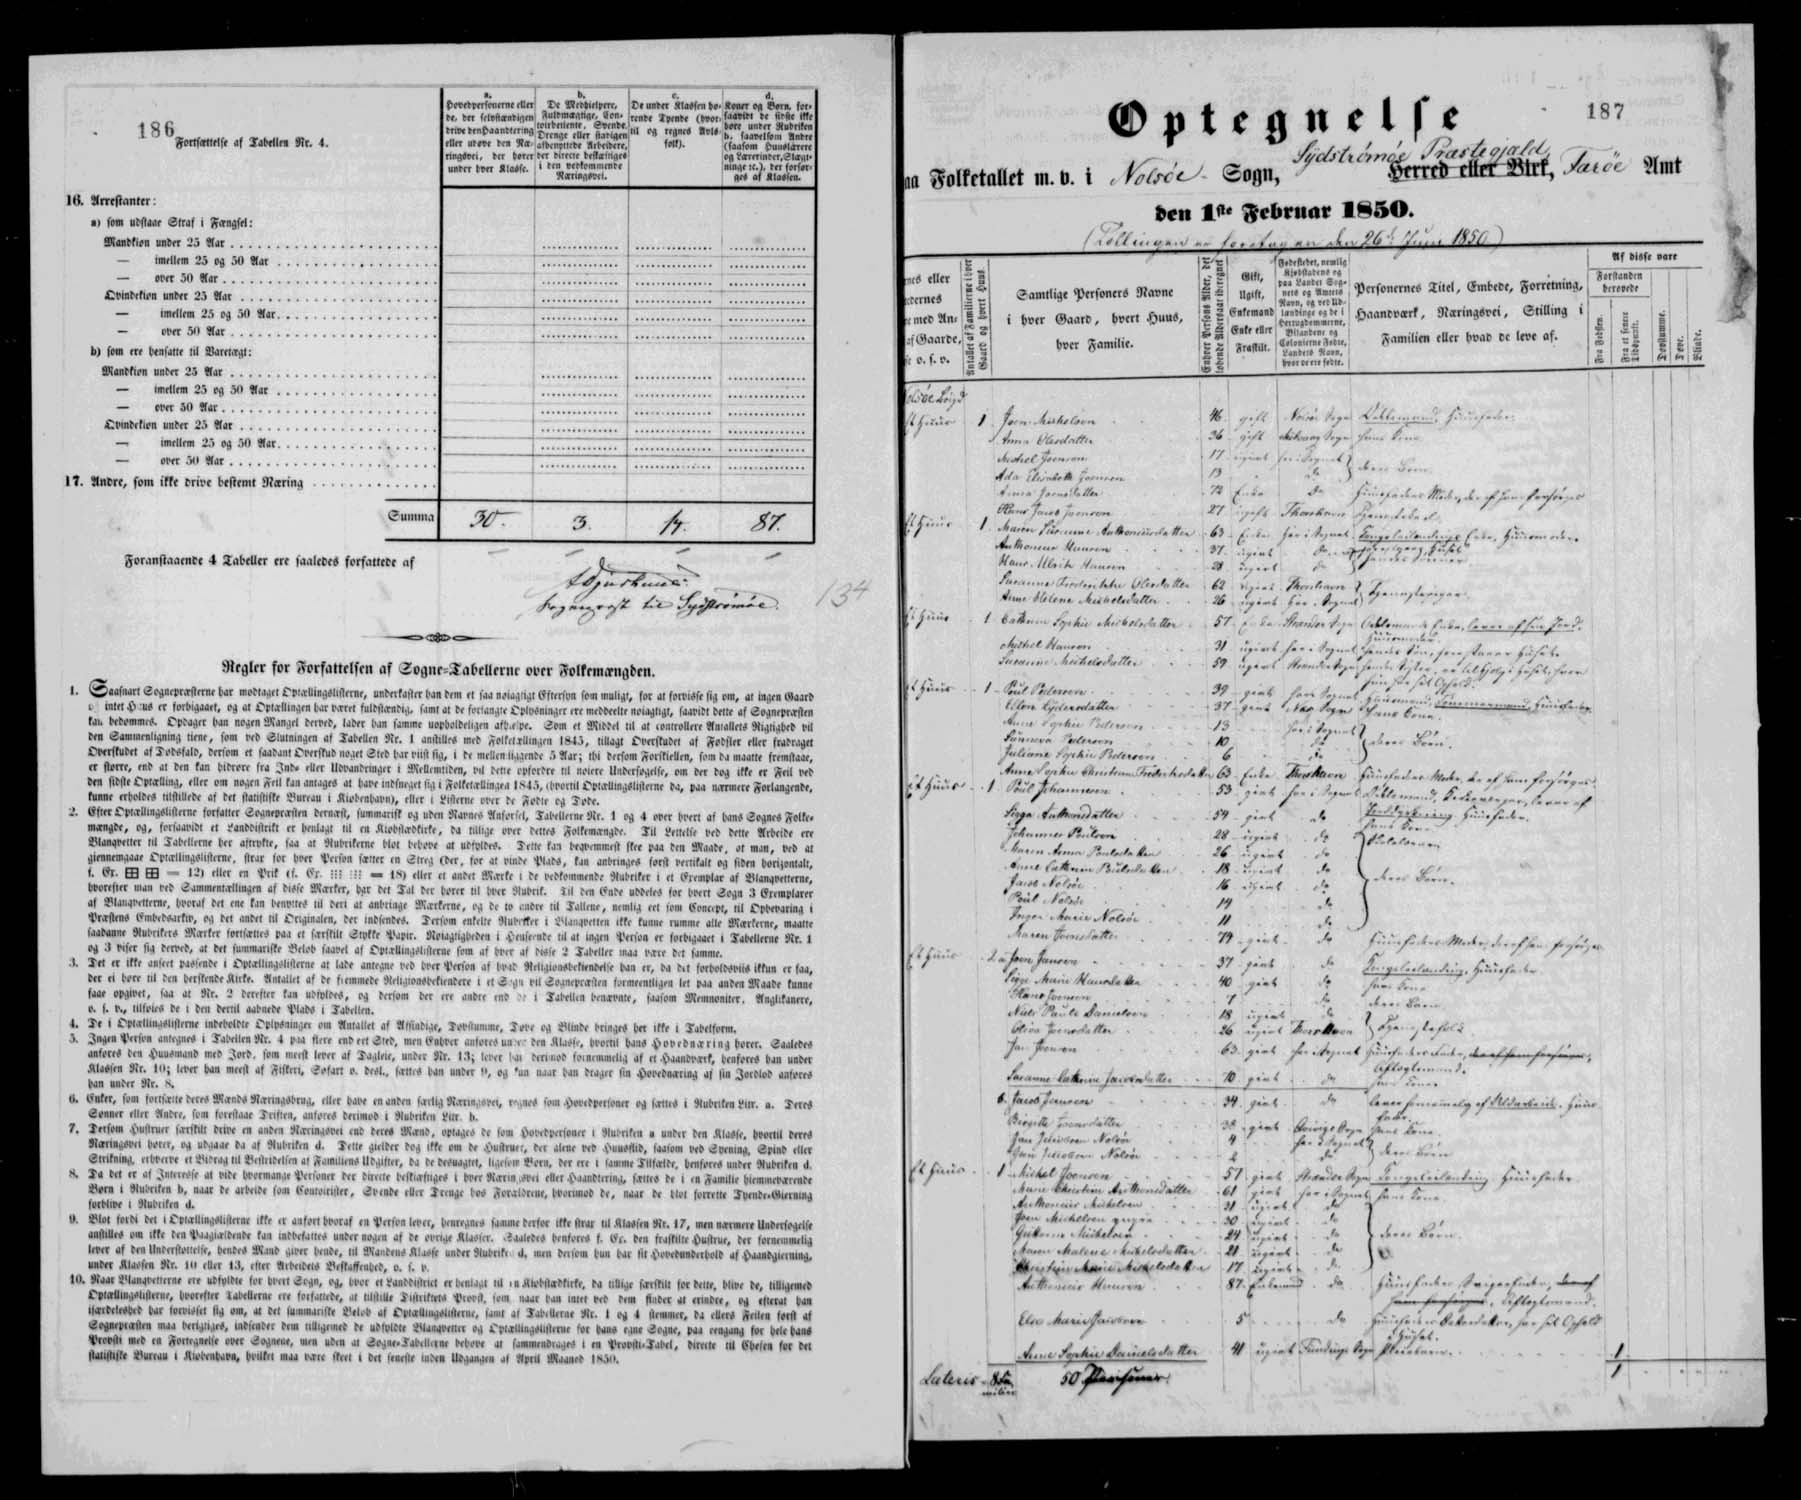 186
Fortsættelse af Tabellen Nr. 4.
a.
Hovedpersonerne eller de, der selvstændigen drive den Haandtering eller udøve den Næringsvei, der hører under hver Klasse.
b.
De Medhielpere, Fuldmægtige, Contoirbetiente, Svende, Drenge eller stadigen afbenyttede Arbeidere, der directe beskæftiges i den vedkommende Næringsvei.
c.
De under Klassen hørende Tyende (hvortil og regnes Avlsfolk).
d.
Koner og Børn, forsaavidt de sidste ikke høre under Rubriken b, saavelsom Andre (saasom Huuslærere og Lærerinder, Slægtninge 2c.), der forsørges af Klassen.
16. Arrestanter:
a) som udstaae Straf i Fængsel:
Mandkiøn under 25 Aar
— imellem 25 og 50 Aar
— over 50 Aar
Qvindekiøn under 25 Aar
— imellem 25 og 50 Aar
— over 50 Aar
b) som ere hensatte til Varetægt:
Mandkiøn under 25 Aar
— imellem 25 og 50 Aar
— over 50 Aar
Qvindekiøn under 25 Aar
— imellem 25 og 50 Aar
— over 50 Aar
17. Andre, som ikke drive bestemt Næring
Summa 30. 3. 14. 87.
Foranstaaende 4 Tabeller ere saaledes forfattede af
Sogneprest til Sydstrømøe.
134
Regler for Forfattelsen af Sogne-Tabellerne over Folkemængden.
1. Saasnart Sognepræsterne har modtaget Optællingslisterne, underkaster han dem et saa nøiagtigt Eftersyn som muligt, for at forvisse sig om, at ingen Gaard
og intet Huus er forbigaaet, og at Optællingen har været fuldstændig, samt at de forlangte Oplysninger ere meddeelte nøiagtigt, saavidt dette af Sognepræsten
kan bedømmes. Opdager han nogen Mangel derved, lader han samme uopholdeligen afhjelpe. Som et Middel til at controllere Antallets Rigtighed vil
den Sammenligning tiene, som ved Slutningen af Tabellen Nr. 1 anstilles med Folketællingen 1845, tillagt Overskudet af Fødsler eller fradraget
Overskudet af Dødsfald, dersom et saadant Overskud noget Sted har viist sig, i de mellemliggende 5 Aar; thi dersom Forskiellen, som da maatte fremstaae,
er større, end at den kan hidrøre fra Ind- eller Udvandringer i Mellemtiden, vil dette opfordre til nøiere Undersøgelse, om der dog ikke er Feil ved
den sidste Optælling, eller om nogen Feil kan antages at have indsneget sig i Folketællingen 1845, (hvortil Optællingslisterne da, paa nærmere Forlangende,
kunne erholdes tilstillede af det statistiske Bureau i Kiøbenhavn), eller i Listerne over de Fødte og Døde.
2. Efter Optællingslisterne forfatter Sognepræsten dernæst, summarisk og uden Navnes Anførsel, Tabellerne Nr. 1 og 4 over hvert af hans Sognes Folke-
mængde, og, forsaavidt et Landdistrikt er henlagt til en Kiøbstædkirke, da tillige over dettes Folkemængde. Til Lettelse ved dette Arbeide ere
Blanqvetter til Tabellerne her aftrykte, saa at Rubrikerne blot behøve at udfyldes. Dette kan beqvemmest skee paa den Maade, at man, ved at
giennemgaae Optællingslisterne, strax for hver Person sætter en Streg (der, for at vinde Plads, kan anbringes først vertikalt og siden horizontalt,
f. Ex. = 12) eller en Prik (f. Ex. = 18) eller et andet Mærke i de vedkommende Rubriker i et Exemplar af Blanqvetterne,
hvorefter man ved Sammentællingen af disse Mærker, har det Tal der hører til hver Rubrik. Til den Ende uddeles for hvert Sogn 3 Exemplarer
af Blanqvetterne, hvoraf det ene kan benyttes til deri at anbringe Mærkerne, og de to andre til Tallene, nemlig eet som Concept, til Opbevaring i
Præstens Embedsarkiv, og det andet til Originalen, der indsendes. Dersom enkelte Rubriker i Blanqvetten ikke kunne rumme alle Mærkerne, maatte
saadanne Rubrikers Mærker fortsættes paa et særskilt Stykke Papir. Nøiagtigheden i Henseende til at ingen Person er forbigaaet i Tabellerne Nr. 1
og 3 viser sig derved, at det summariske Beløb saavel af Optællingslisterne som af hver af disse 2 Tabeller maa være det samme.
3. Det er ikke anseet passende i Optællingslisterne at lade antegne ved hver Person af hvad Religionsbekiendelse han er, da det forholdsviis ikkun er faa,
der ei høre til den herskende Kirke. Antallet af de fremmede Religionsbekiendere i et Sogn vil Sognepræsten formeentligen let paa anden Maade kunne
faae opgivet, saa at Nr. 2 derefter kan udfyldes, og dersom der ere andre end de i Tabellen benævnte, saasom Memnoniter, Anglikanere,
o. s. v., tilføies de i den dertil aabnede Plads i Tabellen.
4. De i Optællingslisterne indeholdte Oplysninger om Antallet af Afsindige, Døvstumme, Døve og Blinde bringes her ikke i Tabelform.
5. Ingen Person antegnes i Tabellen Nr. 4 paa flere end eet Sted, men Enhver anføres under den Klasse, hvortil hans Hovednæring hører. Saaledes
anføres den Huusmand med Jord, som meest lever af Dagleie, under Nr. 13; lever han derimod fornemmelig af et Haandværk, henføres han under
Klassen Nr. 10; lever han meest af Fiskeri, Søfart o. desl., sættes han under 9, og kun naar han drager sin Hovednæring af sin Jordlod anføres
han under Nr. 8.
6. Enker, som fortsætte deres Mænds Næringsbrug, eller have en anden særlig Næringsvei, regnes som Hovedpersoner og sættes i Rubriken Litr. a. Deres
Sønner eller Andre, som forestaae Driften, anføres derimod i Rubriken Litr. b.
7. Dersom Hustruer særskilt drive en anden Næringsvei end deres Mænd, optages de som Hovedpersoner i Rubriken a under den Klasse, hvortil deres
Næringsvei hører, og udgaae da af Rubriken d. Dette gielder dog ikke om de Hustruer, der alene ved Huusflid, saasom ved Spening, Spind eller
Strikning, erhverve et Bidrag til Bestridelsen af Familiens Udgifter, da de desuagtet, ligesom Børn, der ere i samme Tilfælde, henføres under Rubriken d.
8. Da det er af Interesse at vide hvormange Personer der directe beskiæftiges i hver Næringsvei eller Haandtering, sættes de i en Familie hiemmeværende
Børn i Rubriken b, naar de arbeide som Contoirister, Svende eller Drenge hos Forældrene, hvorimod de, naar de blot forrette Tyende-Gierning
forblive i Rubriken d.
9. Blot fordi det i Optællingslisterne ikke er anført hvoraf en Person lever, henregnes samme derfor ikke strax til Klassen Nr. 17, men nærmere Undersøgelse
anstilles om ikke den Paagiældende kan indbefattes under nogen af de øvrige Klasser. Saaledes henføres f. Ex. den fraskilte Hustrue, der fornemmelig
lever af den Understøttelse, hendes Mand giver hende, til Mandens Klasse under Rubriken d, men dersom hun har sit Hovedunderhold af Haandgierning,
under Klassen Nr. 10 eller 13, efter Arbeidets Beskaffenhed, o. s. v.
10. Naar Blanqvetterne ere udfyldte for hvert Sogn, og, hvor et Landdistrict er henlagt til en Kiøbstædkirke, da tillige særskilt for dette, blive de, tilligemed
Optællingslisterne, hvorefter Tabellerne ere forfattede, at tilstille Distriktets Provst, som, naar han intet ved dem finder at erindre, og efterat han
isærdeleshed har forvisset sig om, at det summariske Beløb af Optællingslisterne, samt af Tabellerne Nr. 1 og 4 stemmer, da ellers Feilen først af
Sognepræsten maa berigtiges, indsender dem tilligemed de udfyldte Blanqvetter og Optællingslisterne for hans egne Sogne, paa eengang for hele hans
Provsti med en Fortegnelse over Sognene, men uden at Sogne-Tabellerne behøve at sammendrages i en Provsti-Tabel, directe til Chefen for det
statistiske Bureau i Kiøbenhavn, hvilket maa være skeet i det seneste inden Udgangen af April Maaned 1850.
187
Optegnelse
Sydstrømøe Præstegjæld,
aa Folketallet m. v. i Nolsøe Sogn, Herred eller Birk, Færøe Amt
den 1ste Februar 1850.
(Tællingen er foretagen den 26de Juni 1850)
Antallet af Familierne i hver Gaard og hvert Huus.
Samtlige Personers Navne i hver Gaard, hvert Huus, hver Familie.
Enhver Persons Alder, det løbende Aldersaar iberegnet
Gift, Ugift, Enkemand, Enke eller Fraskilt.
Fødestedet, nemlig Kjøbstadens og paa Landet Sognets og Amtets Navn, og ved Udlændinge og de i Hertugdømmerne, Bilandene og Colonierne Fødte, Landets Navn, hvor de ere fødte.
Personernes Titel, Embede, Forretning, Haandværk, Næringsvei, Stilling i Familien eller hvad de leve af.
Af disse vare
Forstanden berøvede
Fra Fødslen. Fra et senere Tidspunkt. Døvstumme. Døve. Blinde.
Et Huus 1 Joen Michelsen 46 gift Nolsøe Sogn Odelsmand, Huusfader
Anna Olesdatter 36 gift Sogn hans Kone
Michel Joensen 17 ugivt her i Sognet deres Børn
Ada Elisabeth Joensen 13 do
Anna Joensdatter 72 Enke do Huusfaders Moder, der af ham forsørges
Hans Jacob Joensen 27 ugift Thorshavn Tjenestekarl
Et Huus 1 Maren Susanne Anthoniusdatter 63 Enke her i Sognet Kongeleilændings Enke, Huusmoder
Anthonius Hansen 37 ugivt do
Hans Ulrik Hansen 28 ugivt do
Susanne Frederikke Olesdatter 62 ugivt Thorshavn
Anne Helene Michelsdatter 26 ugivt her i Sognet
Et Huus 1 Cathrine Sophie Michelsdatter 57 Enke Strandes Sogn Odelsmands Enke, lever af sin Jord, Huusmoder
Michel Hansen 31 ugivt her i Sognet
Susanne Michelsdatter 59 ugivt Strandes Sogn
Et Huus 1 Poul Pedersen 39 givt her i Sognet Huusmand, Tømmermand, Huusfader
Ellen 37 givt Næs Sogn hans Kone
Anne Sophie Pedersen 13 her i Sognet deres Børn
Sunneva Pedersen 10 do
Juliane Sophie Pedersen 6 do
Anne Sophie Christiane Frederiksdatter 63 Enke Thorshavn Huusfaders Moder, der af ham forsørges
Et Huus 1 Poul Johannesen 53 givt her i Sognet
Sigga Anthonisdatter 54 givt do hans Kone
Johannes Poulsen 28 ugivt do Skolelærer
Maren Anna Poulsdatter 26 ugivt do deres Børn
Anne Cathrine Poulsdatter 18 ugivt do
Jacob Nolsøe 16 ugivt do
Poul Nolsøe 14 do
Inger Marie Nolsøe 11 do
Maren Joensdatter 79 do Huusfaders Moder, der af ham forsørges
Et Huus 2 a Joen Jansen 37 givt do Kongeleilænding, Huusfader
Sigge Marie Hansdatter 40 givt do hans Kone
Hans Joensen 7 do deres Barn
Niels Pauli Danielsen 18 ugivt do Tjenestefolk
Oliva Joensdatter 26 ugivt Thorshavn
Jan Joensen 63 givt her i Sognet Huusfaders Fader, Aftægtsmand
Susanne Cathrine Jacobsdatter 70 givt do hans Kone
b. Jacob Jansen 34 givt do
Birgitte Joensdatter 38 givt hans Kone
Jan Jacobsen Nolsøe 4 her i Sognet deres Børn
Joen Jacobsen Nolsøe 2 do
Et Huus 1 Michel Joensen 57 givt Strandes Sogn Kongeleilænding Huusfader
Marie Christine Anthonisdatter 61 givt her i Sognet hans Kone
Anthonius Michelsen 31 ugivt do deres Børn
Joen Michelsen yngre 30 ugivt do
Guttorm Michelsen 24 ugivt do
Maren Malene Michelsdatter 21 ugivt do
Christine Marie Michelsdatter 17 ugivt do
Anthonius Hansen 87 Enkemand do Huusfaders Svigerfader, Aftægtsmand
Else Marie Jacobsen 5 do
Anne Sophie Danielsdatter 41 ugivt 1
Lateris 8 Familier 50 Personer 1